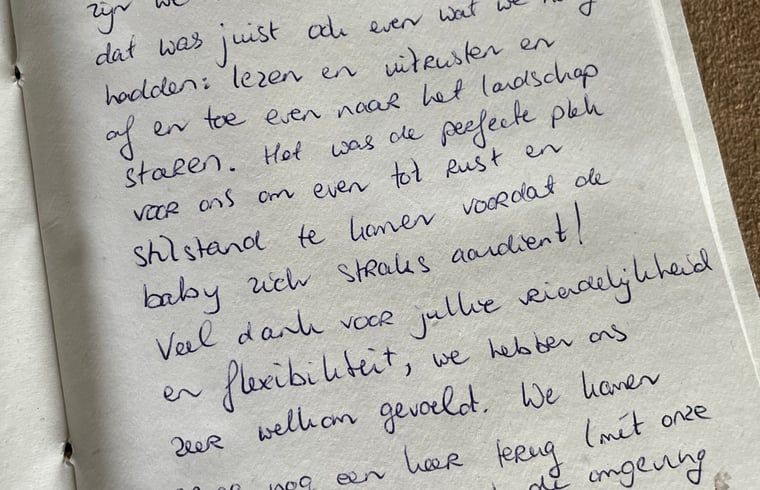 zijn we
dat was juist ook even wat we nog
hadden: lezen en uitrusten en
af en toe even naar het landschap
staren. Het was de perfecte plek
voor ons om even tot rust en
stilstand te komen voordat de
baby zich straks aandient!
Veel dank voor jullie vriendelijkheid
en flexibiliteit, we hebben ons
zeer welkom gevoeld. We komen
nog een keer terug (mét onze
de omgeving